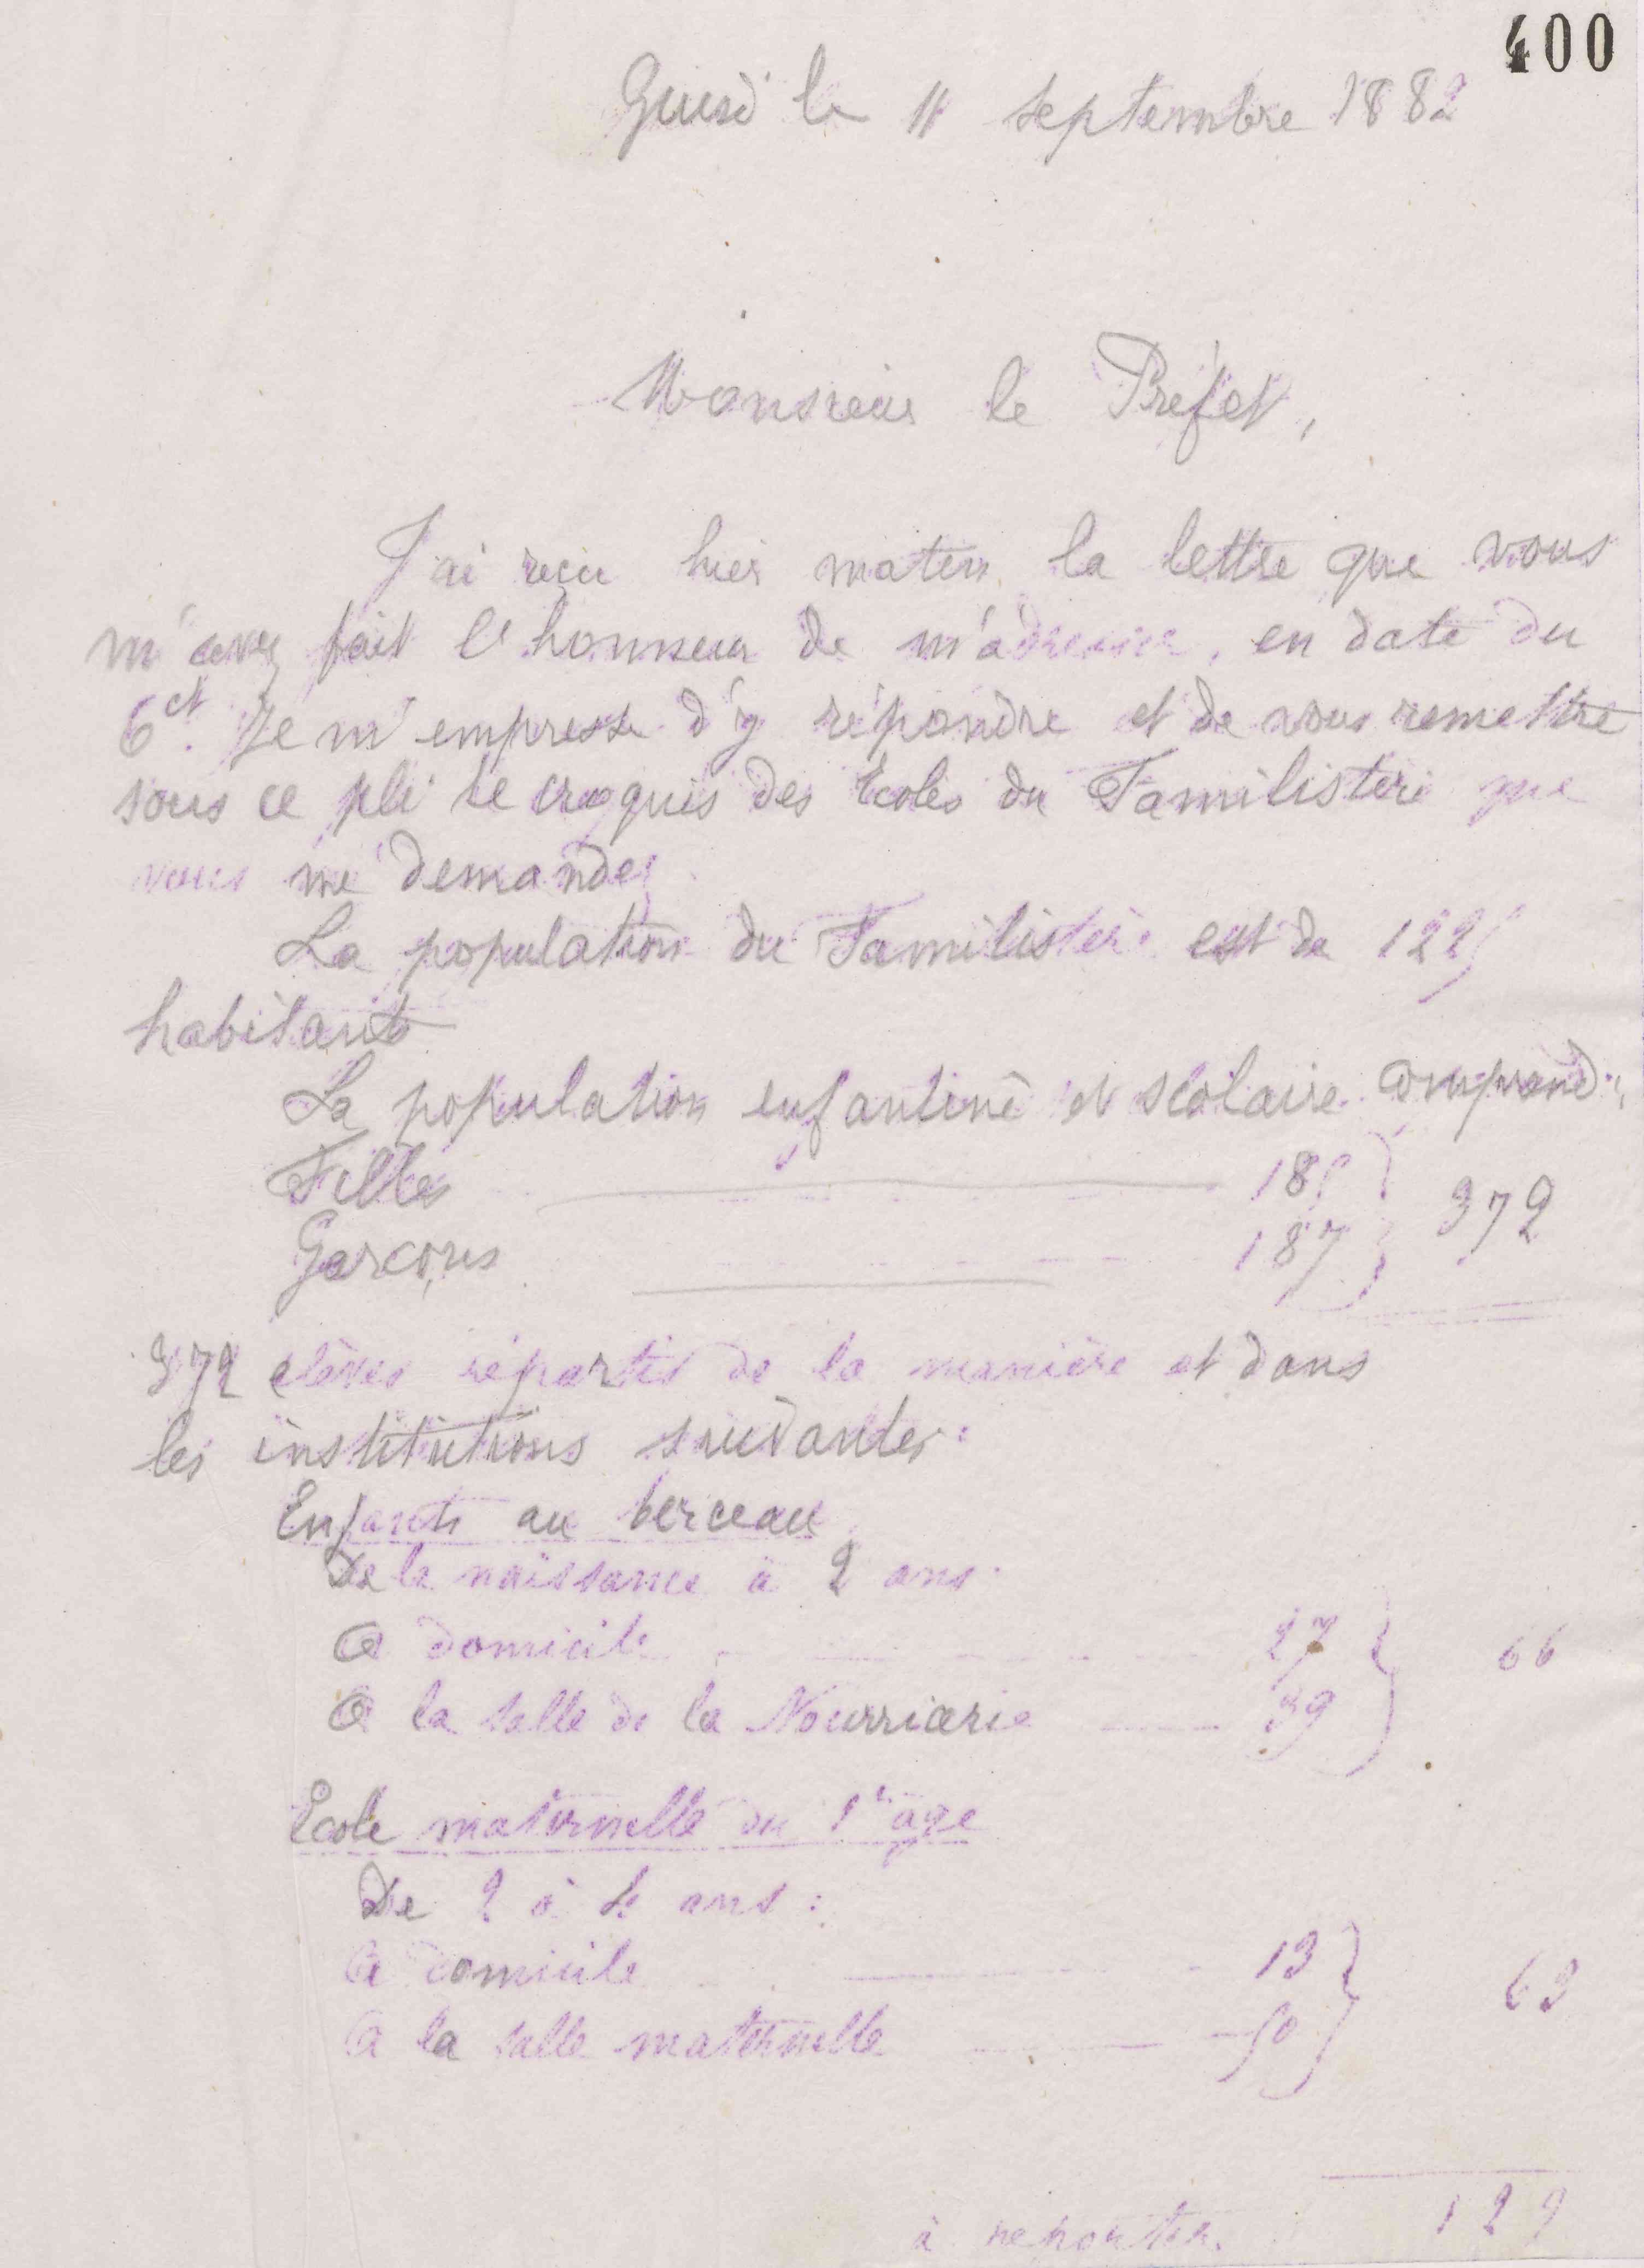 400
Guise le 11 septembre 1882
Monsieur le Préfet,
J'ai reçu hier matin la lettre que vous
m'avez fait l'honneur de m'adresser, en date du
6 ct. Je m'empresse d'y répondre et de vous remettre
sous ce pli le croquis des Ecoles du Familistère que
vous me demandez.
La population du Familistère est de 1225
habitants
La population enfantine et scolaire comprend:
Filles 185 } 372
Garçons 187 }
372 élèves répartis de la manière et dans
les institutions suivantes:
Enfants au berceau
De la naissance à 2 ans.
A domicile 27 } 66
A la salle de la Nourricerie 39 }
Ecole maternelle du 1er âge
De 2 à 4 ans:
A domicile 13 } 63
A la salle maternelle 50 }
à reporter. 129